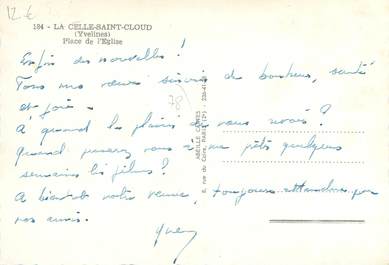 12 €
184 - LA CELLE-SAINT-CLOUD
(Yvelines)
Place de l'Eglise
Enfin des nouvelles !
Tous mes vœux sincères de bonheur, santé
et joie.
A quand le plaisir de vous revoir ?
Quand pensez vous à me prêter quelques
semaines les films ?
A bientôt votre venue, toujours attendue par
vos amis.
Yves
78
ABEILLE CARTES
8, rue du Caire, PARIS (2e)